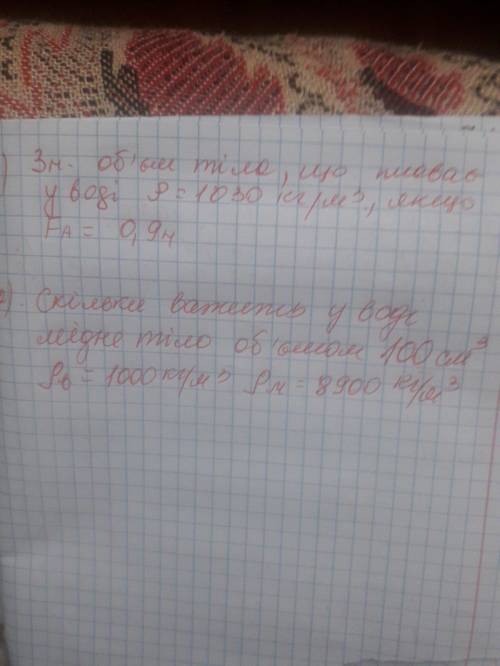 ) Зн. об'єм тіла, що плаває
у воді ρ = 1030 кг/м³, якщо
FА = 0,9н
2). Скільки важить у воді
мідне тіло об'ємом 100 см³
ρв = 1000 кг/м³ ρм = 8900 кг/м³